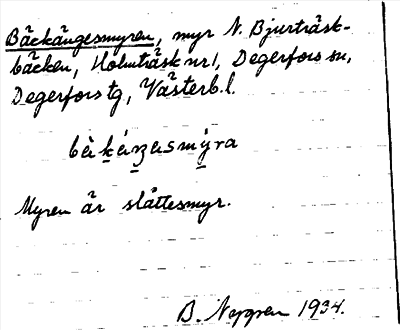 Bäckängesmyren, myr N. Bjurträsk-
bäcken, Holmträsk nr 1, Degerfors sn,
Degerfors tg, Västerb. l.
Myren är slåttesmyr.
B. Nyggren 1934.